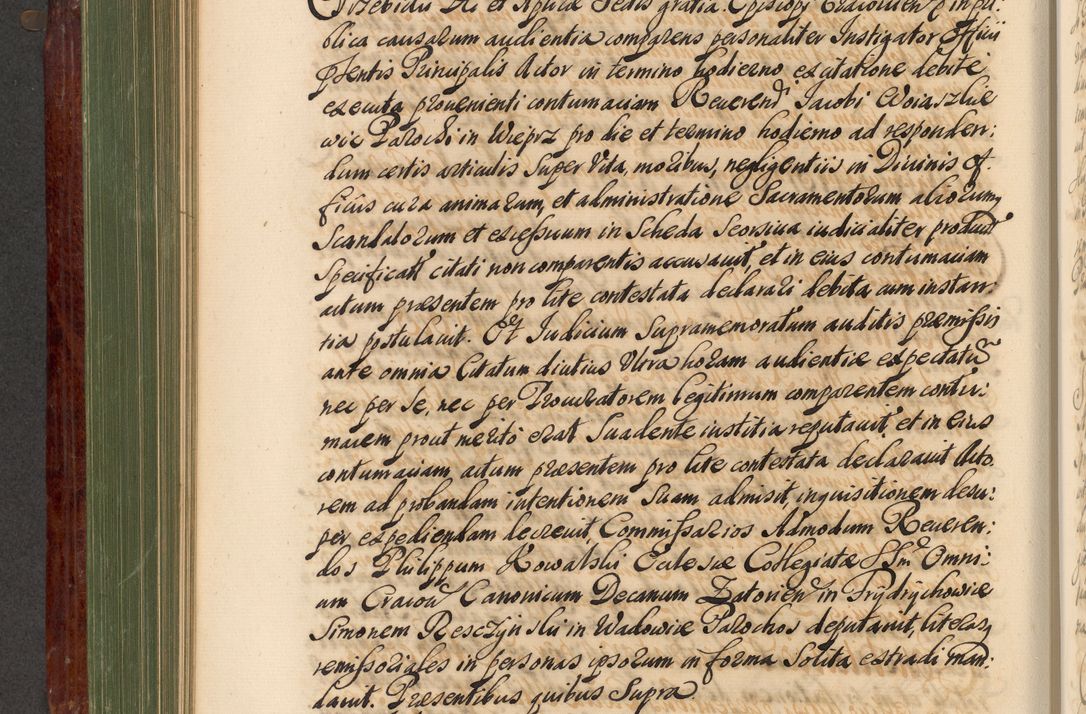 Trzebicki Dei et Aplicæ Sedis gratia Episcopi Cracovien in pu:
blica causarum audientia comparens personaliter Instigator Officii
pñtentis Principalis Actor in termino hodierno ex citatione debite
executa provenienti contumaciam Reverend Jacobi Woiaszkie
wic Parochi in Wieprz pro die et termino hodierno ad responden:
dum certis articulis Super Vita, moribus, negligentiis in Divinis of
ficiis cura animarum, et administratione Sacramentorum aliorumq
Scandalorum et excessuum in Scheda Seorsiva iudicialiter product
Specificatt citati non comparentis accusavit, et in eius contumaciam
actum præsentem pro lite contestata declarari debita cum instan:
tia postulavit. Et Iudicium Supramemoratum auditis præmissis
ante omnia Citatum diutius Ultra horam audientiæ expectatu
nec per Se, nec per Procuratorem legitimum comparentem contu:
macem prout merito erat Suadente iustitia reputavit et in eius
contumaciam actum præsentem pro lite contestata declaravit Acto
rem ad probandam intentionem Suam admisit, inquisitionem desu:
per expediendam decrevit, Commissarios Admodum Reveren:
dos Philippum Kowalski Ecclesiæ Collegiatæ SSm Omni:
um Cracov Canonicum Decanum Zatorien in Prydrychowice
Simonem Resczynski in Wadowice Parochos deputavit, literasq
remissoriales in personas ipsorum in forma Solita extradi man:
davit. Præsentibus quibus Supra